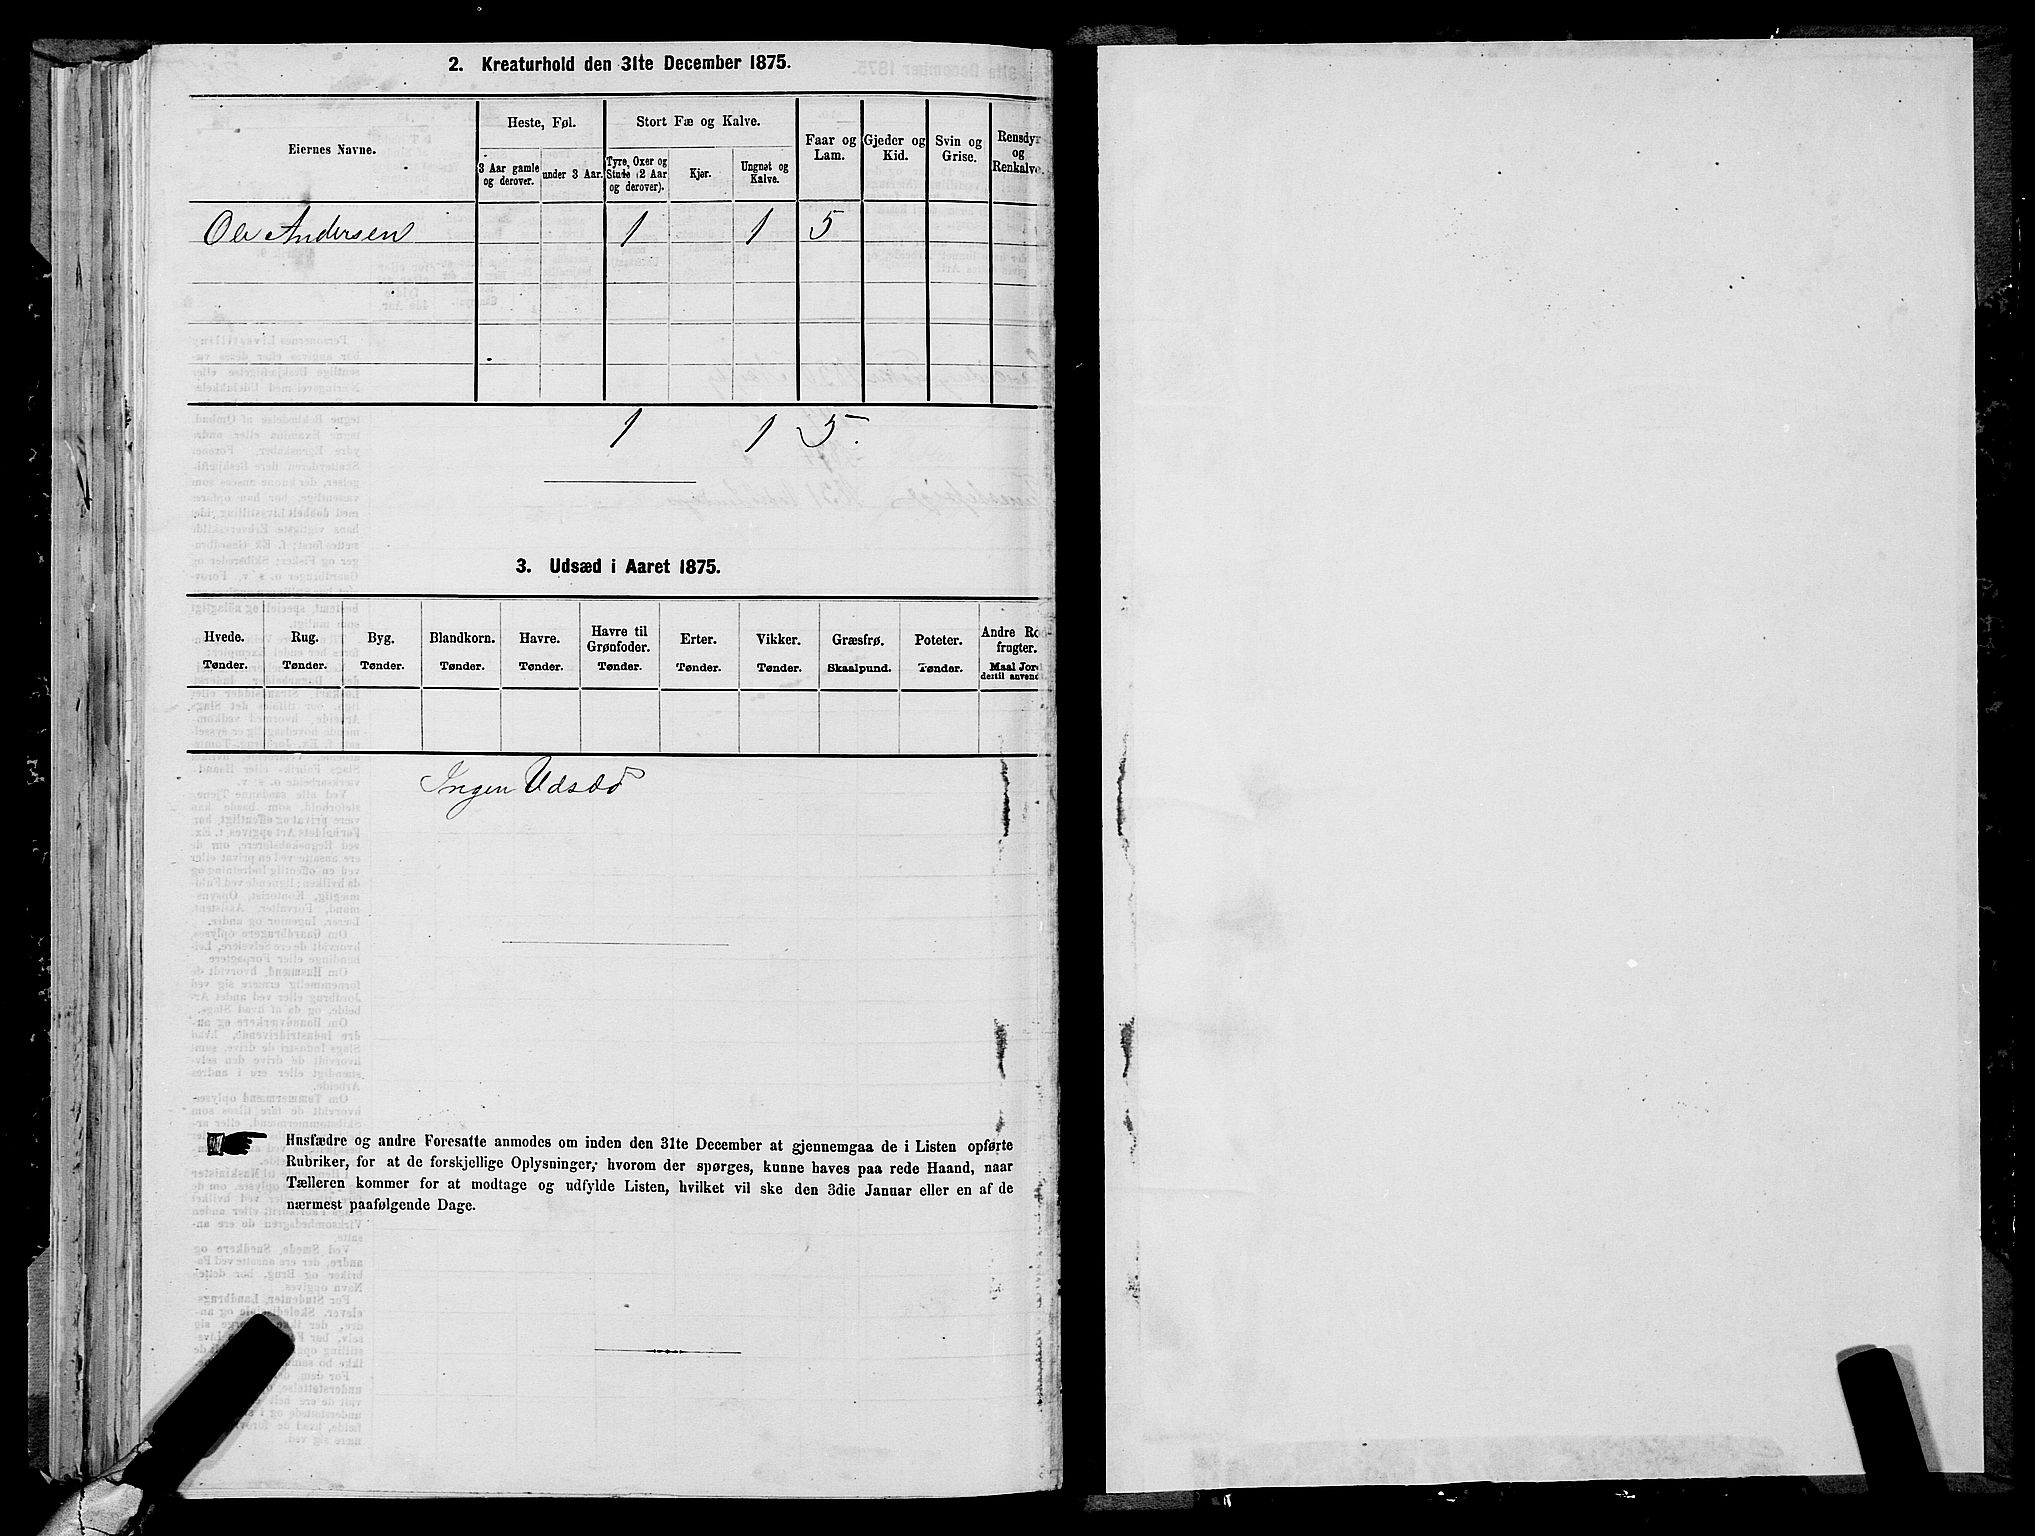 2. Kreaturhold den 31te December 1875.
Eiernes Navne.
Heste, Føl.
3 Aar gamle og derover.
under 3 Aar.
Stort Fæ og Kalve.
Tyre, Oxer og Stude (2 Aar og derover).
Kjør.
Ungnøt og Kalve.
Faar og Lam.
Gjeder og Kid.
Svin og Grise.
Rensdyr og Renkalve.
Ole Andersen 1 1 5
1 1 5.
3. Udsæd i Aaret 1875.
Hvede. Rug. Byg. Blandkorn. Havre. Havre til Grønfoder. Erter. Vikker. Græsfrø. Poteter. Andre Ro frugter.
Tønder. Tønder. Tønder. Tønder. Tønder. Tønder. Tønder. Tønder. Skaalpund. Tønder. Maal Jor dertil anvend
Ingen Udsæd
Husfædre og andre Foresatte anmodes om inden den 31te December at gjennemgaa de i Listen opførte
Rubriker, for at de forskjellige Oplysninger, hvorom der spørges, kunne haves paa rede Haand, naar
Tælleren kommer for at modtage og udfylde Listen, hvilket vil ske den 3die Januar eller en af de
nærmest paafølgende Dage.